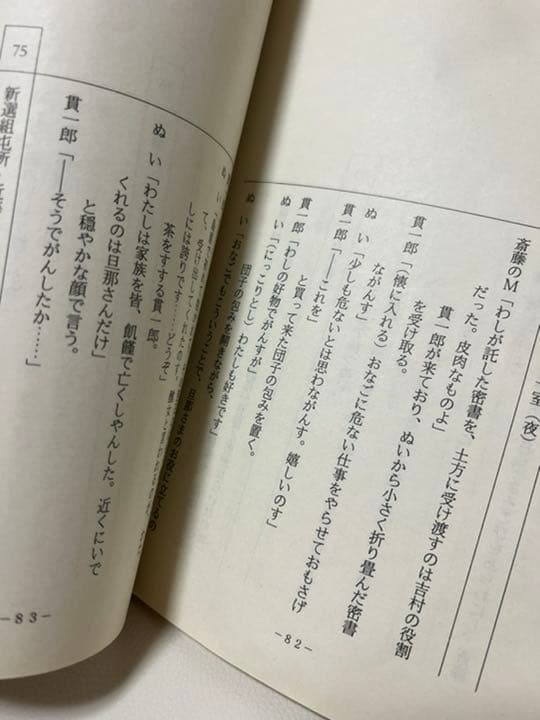 一室（夜）
斎藤のM「わしが託した密書を、土方に受け渡すのは吉村の役割
だった。皮肉なものよ」
貫一郎が来ており、ぬいから小さく折り畳んだ密書
を受け取る。
貫一郎「（懐に入れる）おなごに危ない仕事をやらせておもさげ
ながんす」
ぬい「少しも危ないとは思わながんす。嬉しいのす」
貫一郎「――これを」
と買って来た団子の包みを置く。
貫一郎「わしの好物でがんすが」
ぬい「（にっこりとし）わたしも好きです」
団子の包みを開きながら、
ぬい「おなごでもこういうことで、旦那さまのお役に立てるの
－82－
て、受け出してくれた
しには誇りです……どうぞ」
茶をすする貫一郎。
ぬい「わたしは家族を皆、飢饉で亡くしゃんした。近くにいで
くれるのは旦那さんだけ」
と穏やかな顔で言う。
貫一郎「――そうでがんしたか……」
75
新選組屯所
－83－